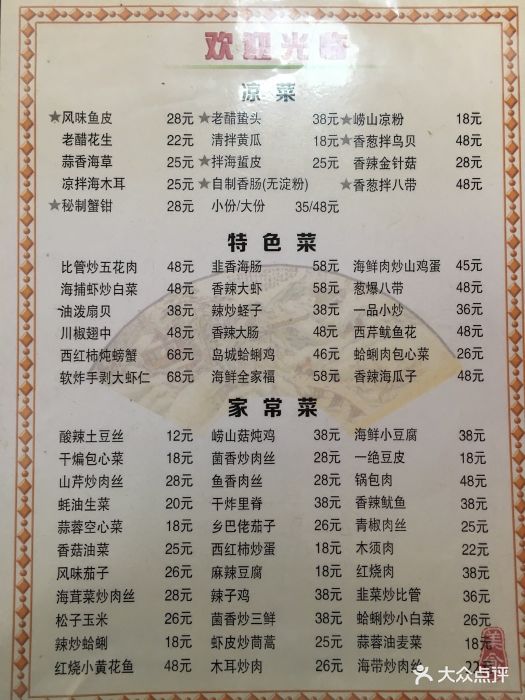 欢迎光临
凉菜
★风味鱼皮 28元 ★老醋蛰头 38元 ★崂山凉粉 18元
老醋花生 22元 清拌黄瓜 18元 ★香葱拌鸟贝 48元
蒜香海草 25元 ★拌海蜇皮 25元 香辣金针菇 28元
凉拌海木耳 25元 ★自制香肠(无淀粉) ★香葱拌八带 48元
★秘制蟹钳 28元 小份/大份 35/48元
特色菜
比管炒五花肉 48元 韭香海肠 58元 海鲜肉炒山鸡蛋 45元
海捕虾炒白菜 48元 香辣大虾 58元 葱爆八带 48元
油泼扇贝 38元 辣炒蛏子 38元 一品小炒 36元
川椒翅中 48元 香辣大肠 48元 西芹鱿鱼花 48元
西红柿炖螃蟹 68元 岛城蛤蜊鸡 46元 蛤蜊肉包心菜 26元
软炸手剥大虾仁 68元 海鲜全家福 58元 香辣海瓜子 48元
家常菜
酸辣土豆丝 12元 崂山菇炖鸡 38元 海鲜小豆腐 38元
干煸包心菜 18元 菌香炒肉丝 28元 一绝豆皮 18元
山芹炒肉丝 28元 鱼香肉丝 28元 锅包肉 48元
蚝油生菜 20元 干炸里脊 38元 香辣鱿鱼 38元
蒜蓉空心菜 18元 乡巴佬茄子 26元 青椒肉丝 25元
香菇油菜 25元 西红柿炒蛋 18元 木须肉 22元
风味茄子 26元 麻辣豆腐 18元 红烧肉 38元
海茸菜炒肉丝 28元 辣子鸡 38元 韭菜炒比管 36元
松子玉米 26元 菌香炒三鲜 38元 蛤蜊炒小白菜 26元
辣炒蛤蜊 18元 虾皮炒茼蒿 25元 蒜蓉油麦菜 18元
红烧小黄花鱼 48元 木耳炒肉 26元 海带炒肉丝 22元
大众点评